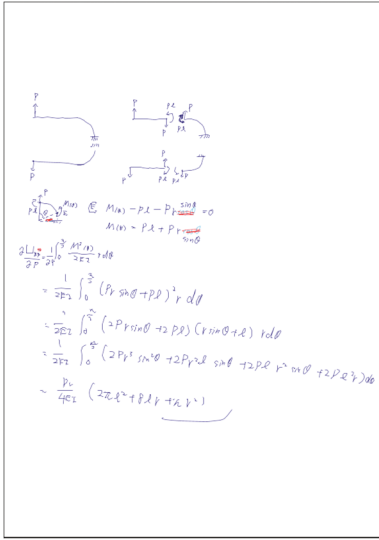 P
P
Pl
P
P
Pl
P
P
P
Pl
M(θ) - Pl - Pr sinθ = 0
M(θ) = Pl + Pr sinθ
= 1/2EI ∫₀^(π/2) (Pr sinθ + Pl)² r dθ
= 1/2EI ∫₀^(π/2) (2Pr sinθ + 2Pl)(r sinθ + l) r dθ
= 1/2EI ∫₀^(π/2) (2Pr³ sin²θ + 2Pr²l sinθ + 2Pl r² sinθ + 2Pl²r) dθ
(2πl² + 8lr + πr²)